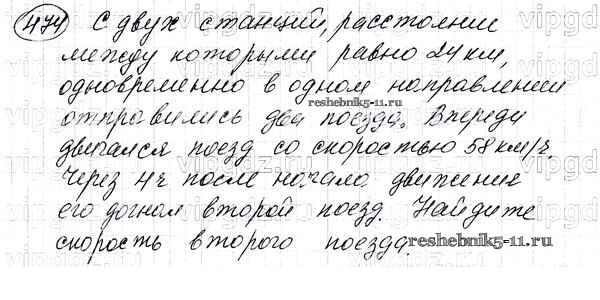 474 С двух станций, расстоянии
между которыми равно 24 км,
одновременно в одном направлении
reshebnik5-11.ru
отправились два поезда. Впереди
двигался поезд со скоростью 58 км/ч.
Через 4 ч после начала движения
его догнал второй поезд. Найдите
скорость второго поезда.
reshebnik5-11.ru